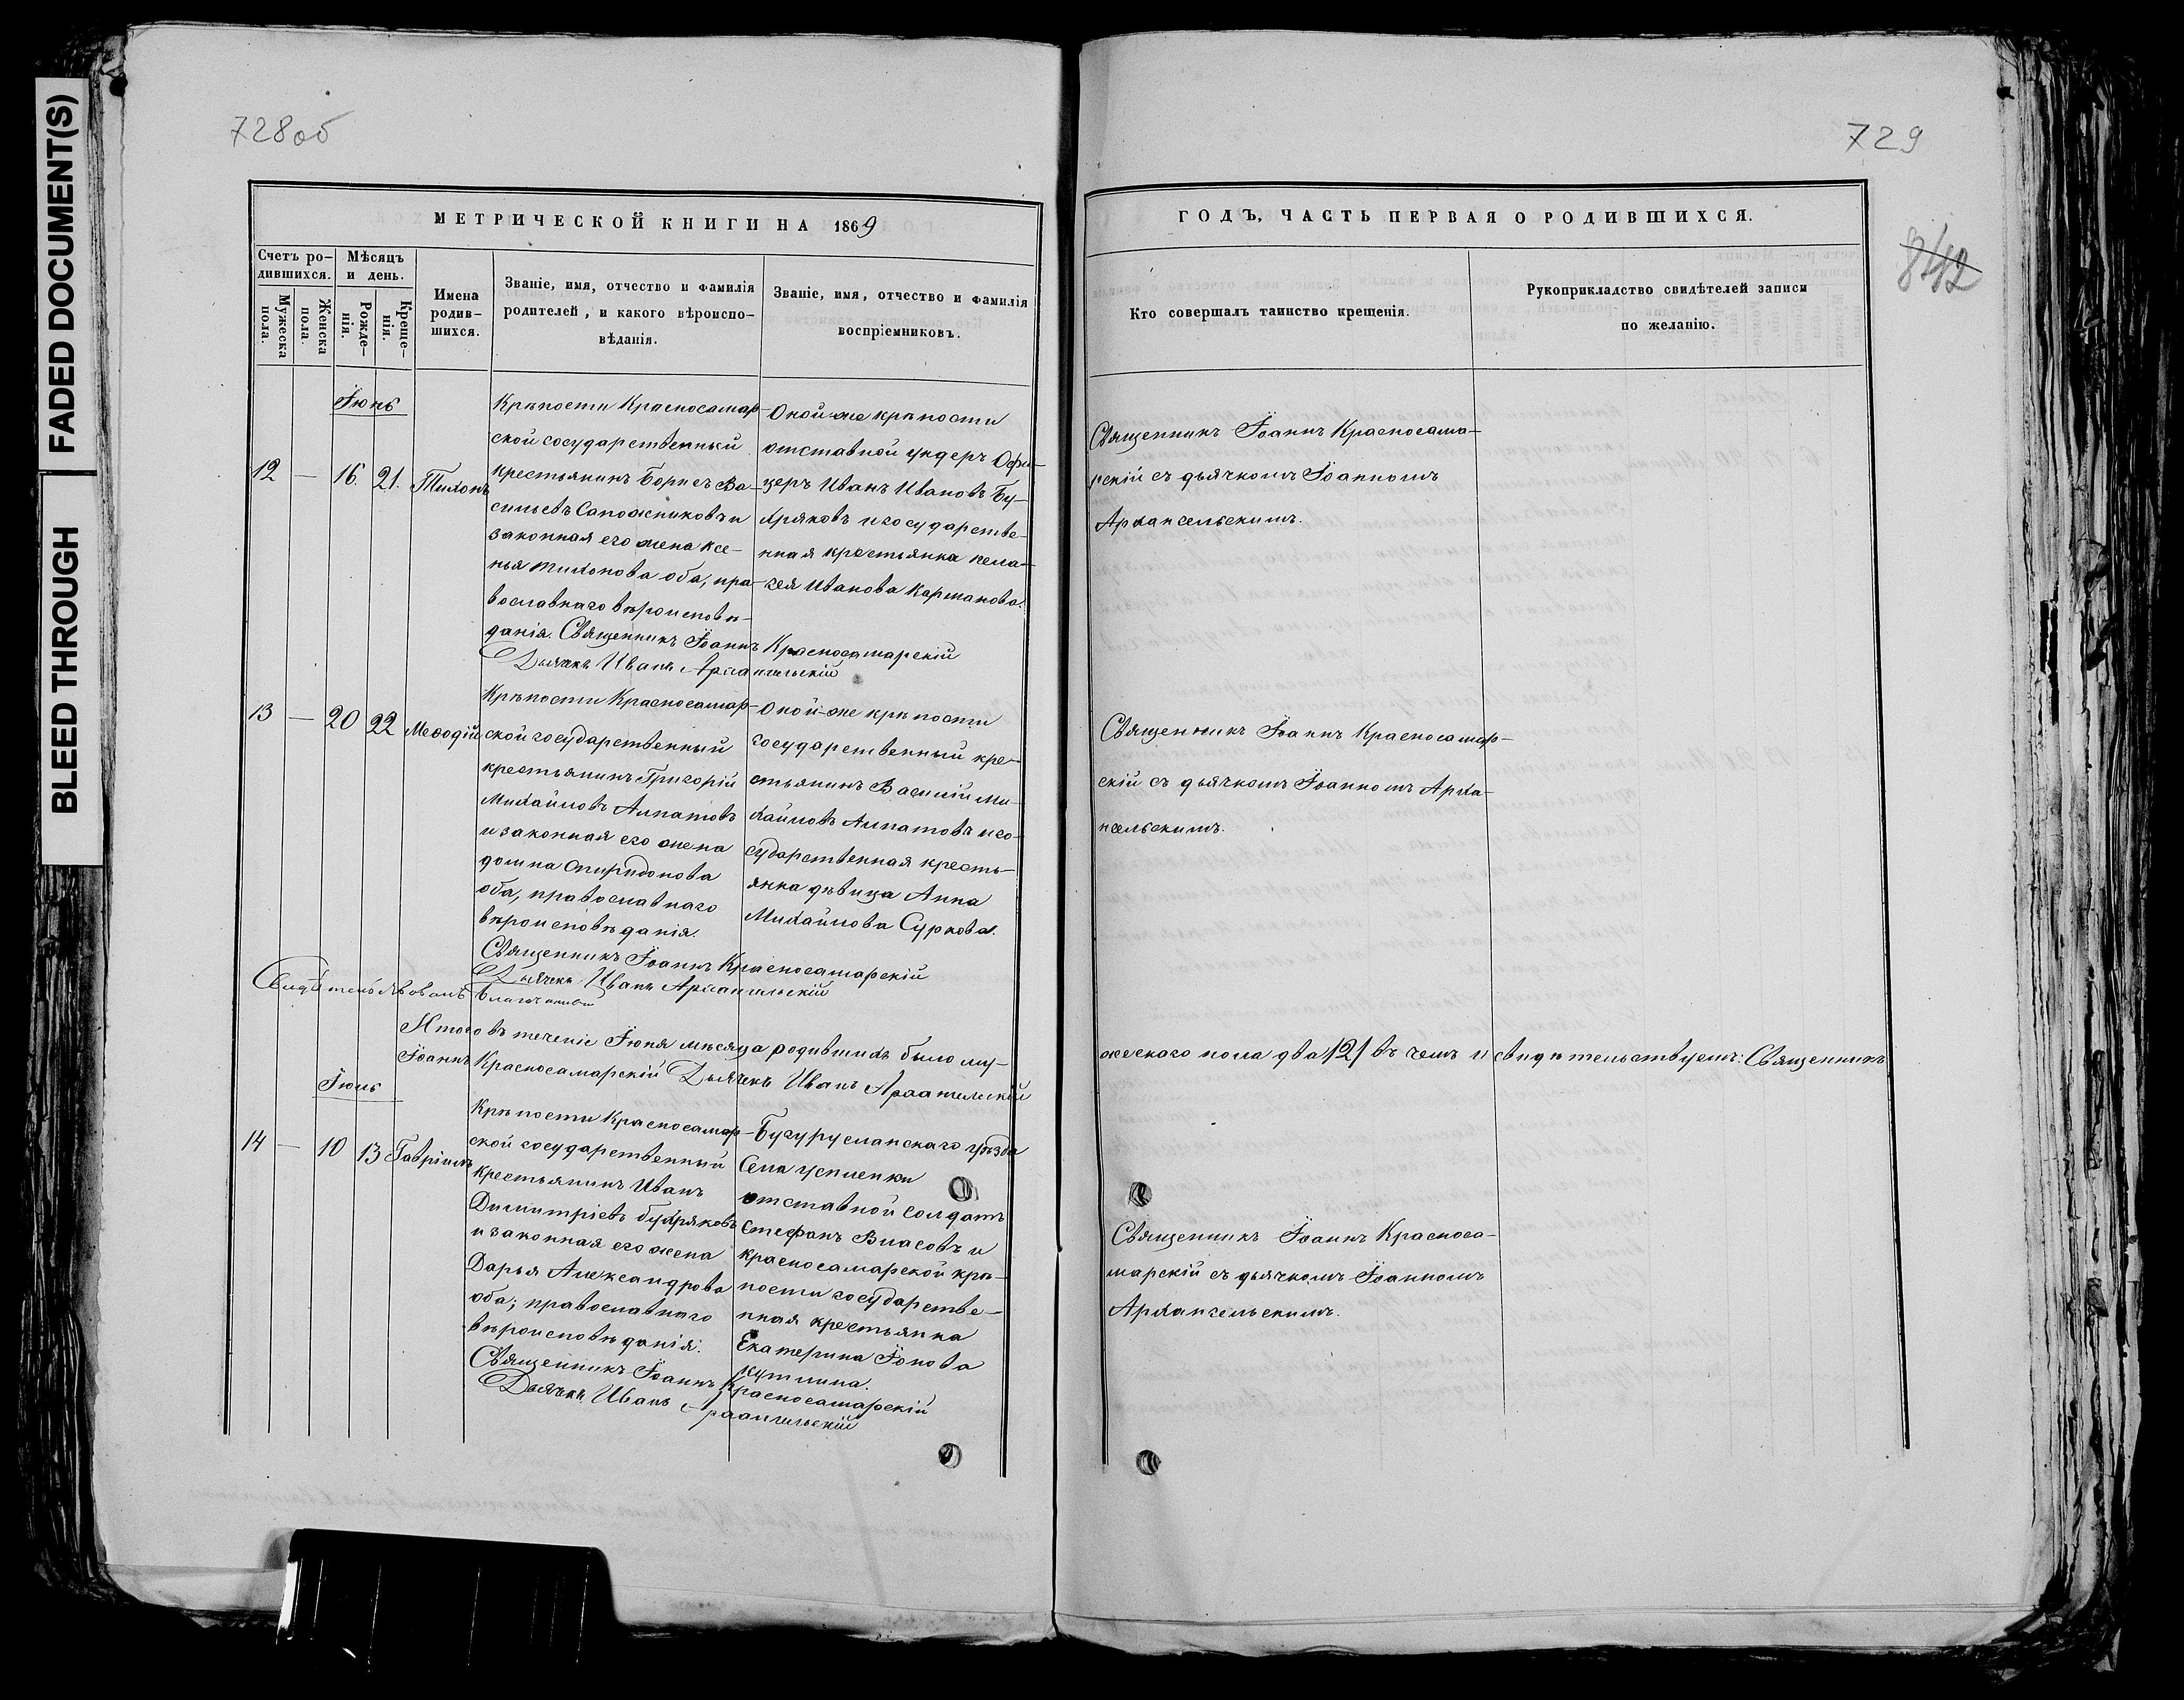 FADED DOCUMENT(S)
BLEED THROUGH
728об
729
842
МЕТРИЧЕСКОЙ КНИГИ НА 1869
ГОДЪ, ЧАСТЬ ПЕРВАЯ О РОДИВШИХСЯ.
Счетъ ро-
дившихся.
Мужеска
пола.
Женска
пола.
Мѣсяцъ
и день.
Рожде-
нія.
Креще-
нія.
Имена
родив-
шихся.
Званіе, имя, отчество и фамилія
родителей, и какого вѣроиспо-
вѣданія.
Званіе, имя, отчество и фамилія
воспріемниковъ.
Кто совершалъ таинство крещенія.
Рукоприкладство свидѣтелей записи
по желанію.
Іюнь
12 — 16. 21. Тихонъ
Крѣпости Красносамар-
ской государственный
крестьянинъ Борисъ Ва-
сильевъ Сапожниковъ и
законная его жена Ксе-
нья Тихонова оба, пра-
вославнаго вѣроисповѣ-
данія. Священникъ Іоаннъ Красносамарскій
Дьячекъ Иванъ Архангельскій
Оной же крѣпости
отставной ундеръ Офи-
церъ Иванъ Ивановъ Бу-
хряковъ и государстве-
нная крестьянка Пела-
гея Иванова Карманова.
Священникъ Іоаннъ Красносама-
рскій съ дьячкомъ Іоанномъ
Архангельскимъ.
13 — 20 22 Меѳодій
Крѣпости Красносамар-
ской государственный
крестьянинъ Григорій
Михайловъ Алпатовъ
и законная его жена
Домна Спиридонова
оба, православнаго
вѣроисповѣданія.
Священникъ Іоаннъ Красносамарскій
Дьячекъ Иванъ Архангельскій
Оной-же крѣпости
государственный кре-
стьянинъ Василій Ми-
хайловъ Алпатовъ и го-
сударственная кресть-
янка дѣвица Анна
Михайлова Суркова.
Священникъ Іоаннъ Красносамар-
скій съ дьячкомъ Іоанномъ Арха-
нгельскимъ.
Свидѣтельствовалъ Благочинный
Итого въ теченіе Іюня мѣсяца родившихъ было му-
жескаго пола два /2/ въ чемъ и свидѣтельствуемъ: Священникъ
Іоаннъ Красносамарскій Дьячекъ Иванъ Архангельскій
Іюль
14 — 10 13 Гавріилъ
Крѣпости Красносамар-
ской государственный
крестьянинъ Иванъ
Димитріевъ Бухряковъ
и законная его жена
Дарья Александрова
оба; православнаго
вѣроисповѣданія.
Священникъ Іоаннъ Красносамарскій
Дьячекъ Иванъ Архангельскій
Бугурусланскаго уѣзда
Села
отставной солдатъ
Стефанъ Власовъ и
красносамарской крѣ-
пости государстве-
нная крестьянка
Екатерина Іонова
Священникъ Іоаннъ Красноса-
марскій съ дьячкомъ Іоанномъ
Архангельскимъ.